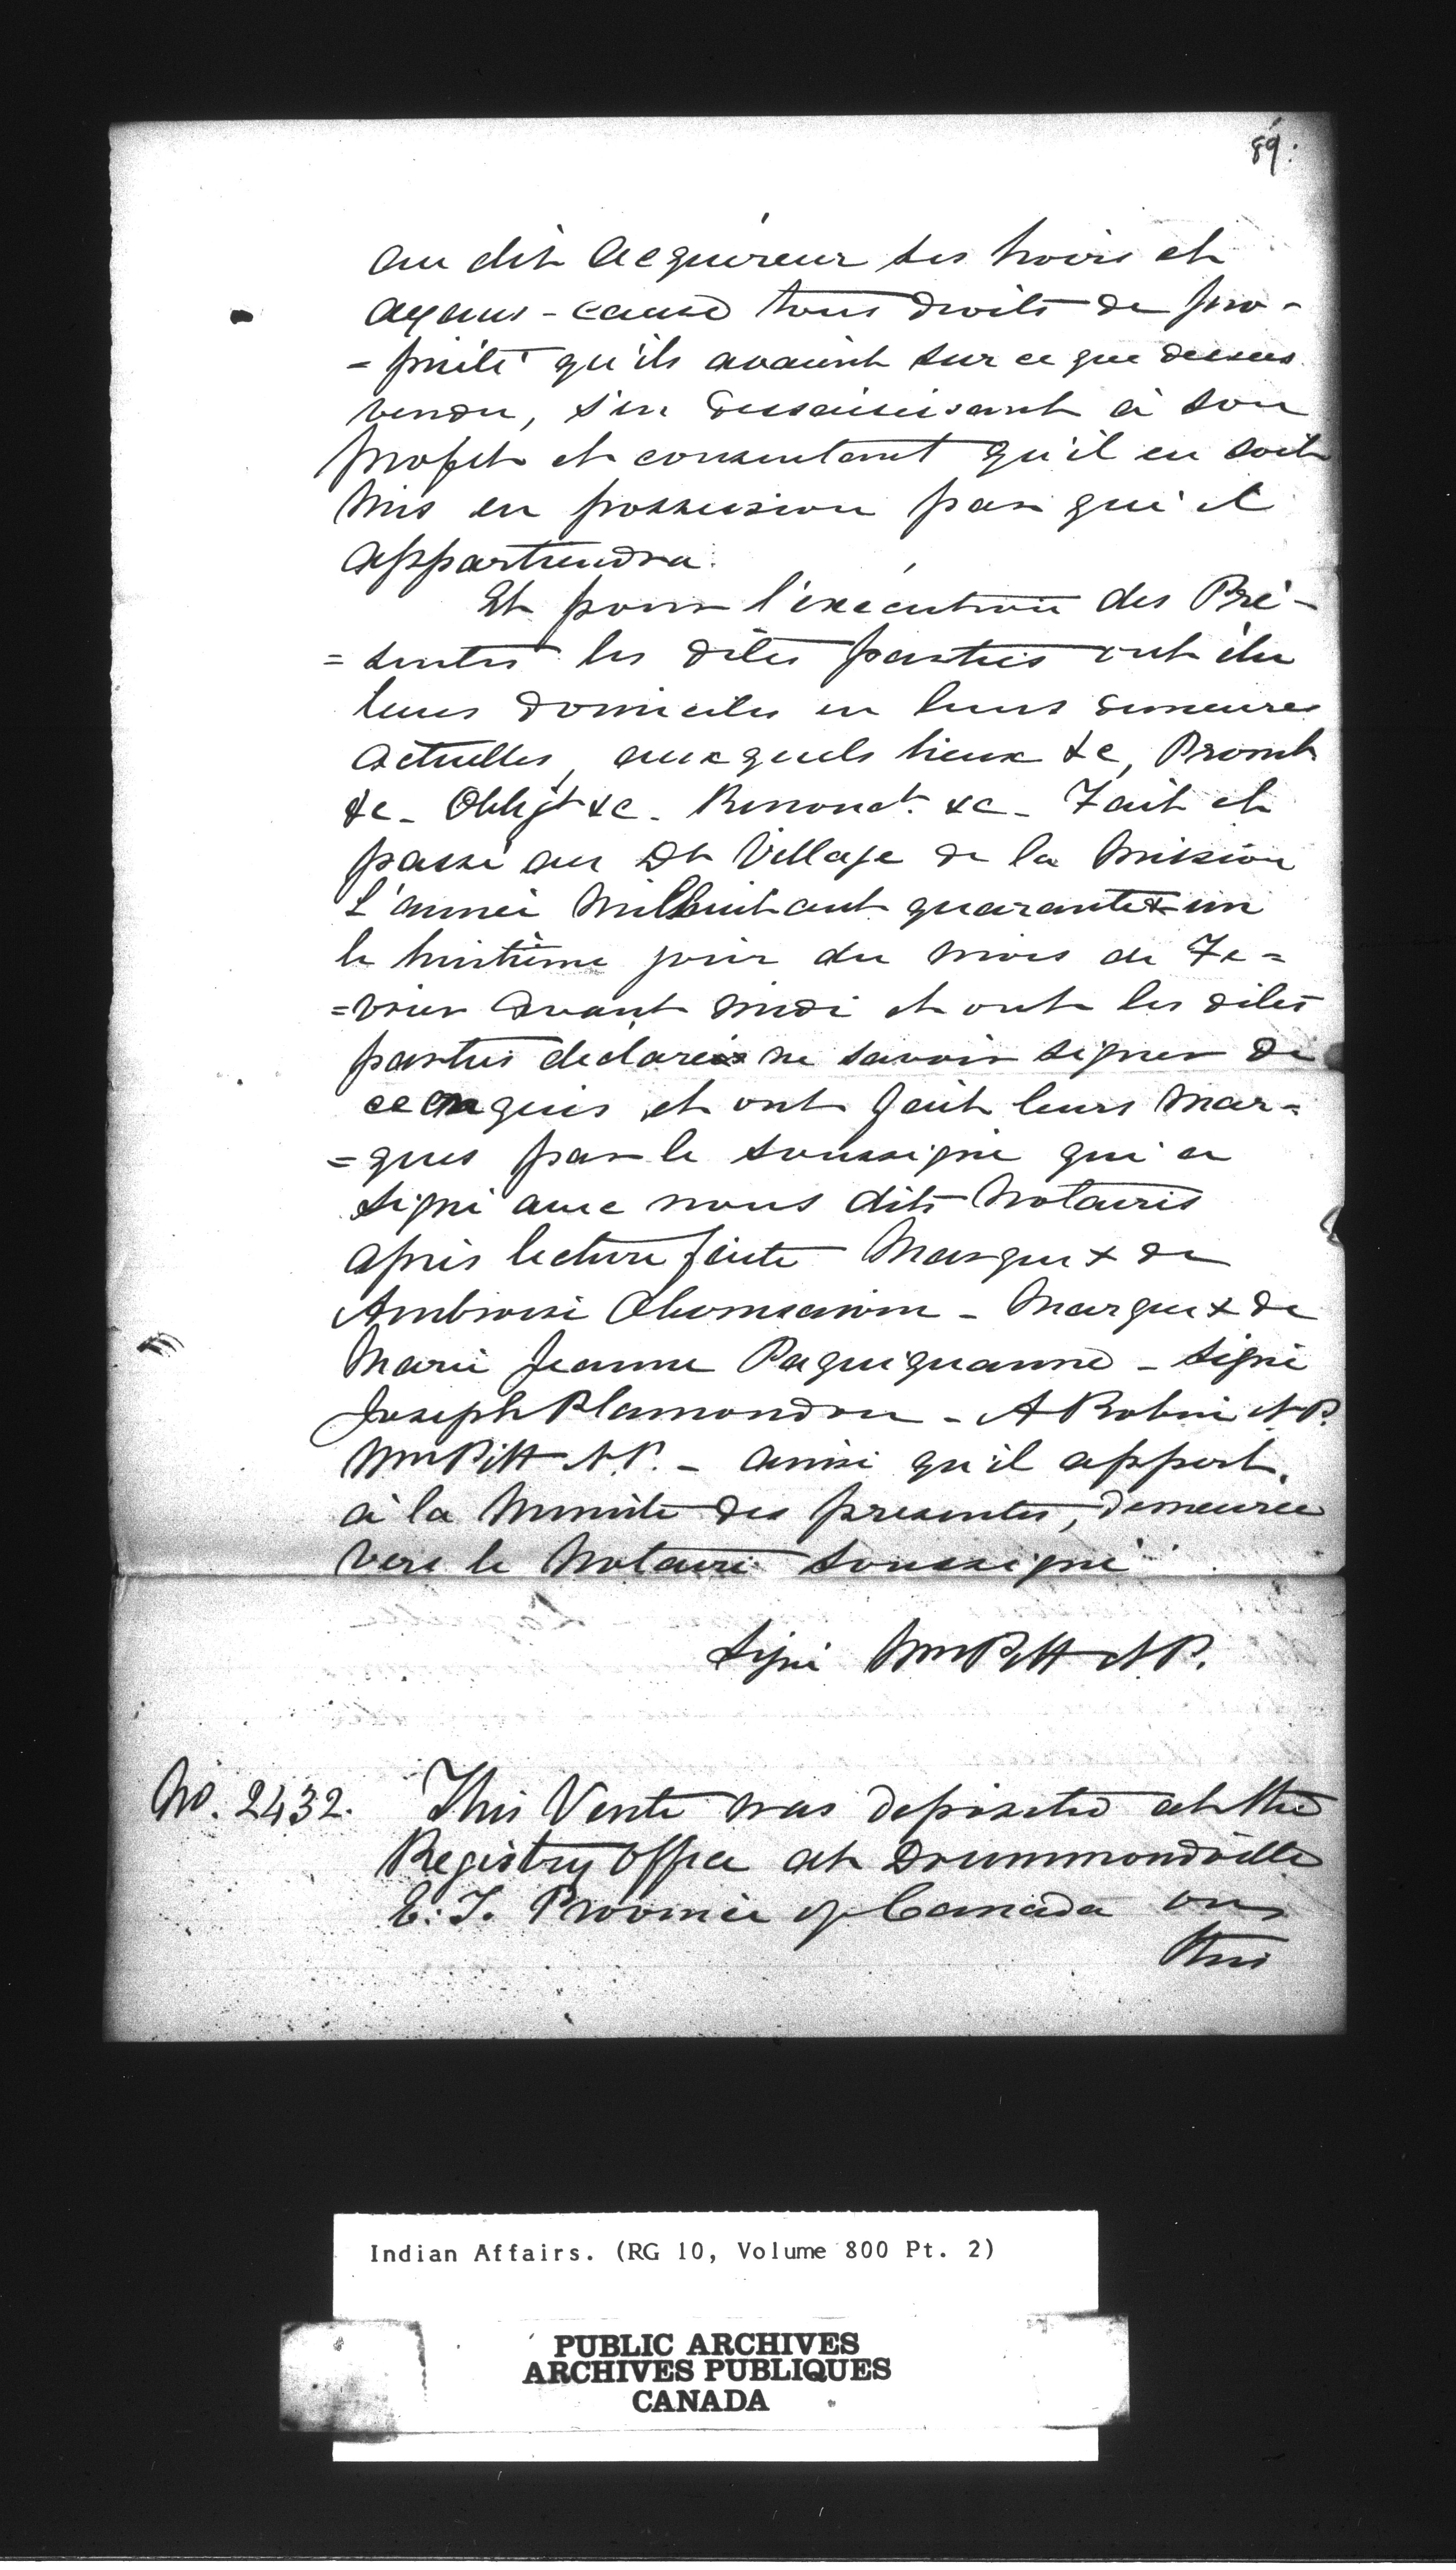 89.
au dit acquéreur ses hoirs et
ayans-cause tous droits de pro-
=priété qu'ils avaient sur ce que dessus
vendu, s'en dessaisissant à son
profit et consentant qu'il en soit
mis en possession par qui il
appartiendra.
Et pour l'exécution des Pré-
=sentes les dites parties ont élu
leurs domiciles en leurs demeures
actuelles, auxquels lieux &c, Promt
&c - Obligt &c. Renonct. &c - Fait et
passé au Dt Village de la Mission
L'année Mil huit cent quarante & un
le huitième jour du mois de Fe=
=vrier avant midi et ont les dites
parties declaré ne savoir signer de
ce enquis et ont fait leurs mar=
=ques par le soussigné qui a
signé avec nous dits Notaires
après lecture faite Marque x de
Ambroise - Marque x de
Marie Jeanne - signé
Joseph Plamondon - A Robin N.P.
Wm Pitt N.P. - ainsi qu'il appert
à la Minute des presentes, demeurée
vers le Notaire soussigné
Signé Wm Pitt N.P.
No. 2432. This Vente was deposited at the
Registry Office at Drummondville
E. T. Province of Canada on
this
Indian Affairs. (RG 10, Volume 800 Pt. 2)
PUBLIC ARCHIVES
ARCHIVES PUBLIQUES
CANADA